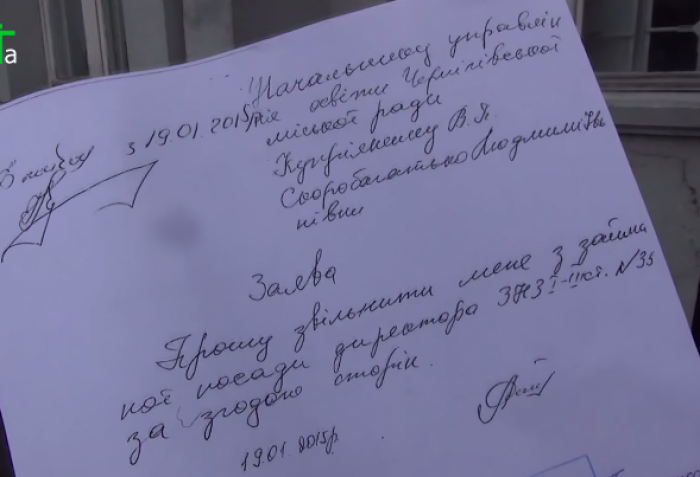 Та
Начальнику управлін
ня освіти Чернігівської
міської ради
Купріяненку В.Я.
Скоробагатько Людмили Іва
нівни
В наказ
з 19.01.2015р
Заява
Прошу звільнити мене з займа
ної посади директора ЗНЗ I-III ст. N 35
за згодою сторін.
19.01.2015р.